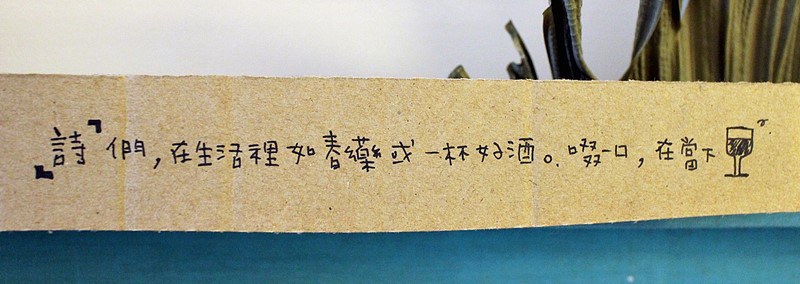 「詩」們，在生活裡如春藥或一杯好酒。啜一口，在當下